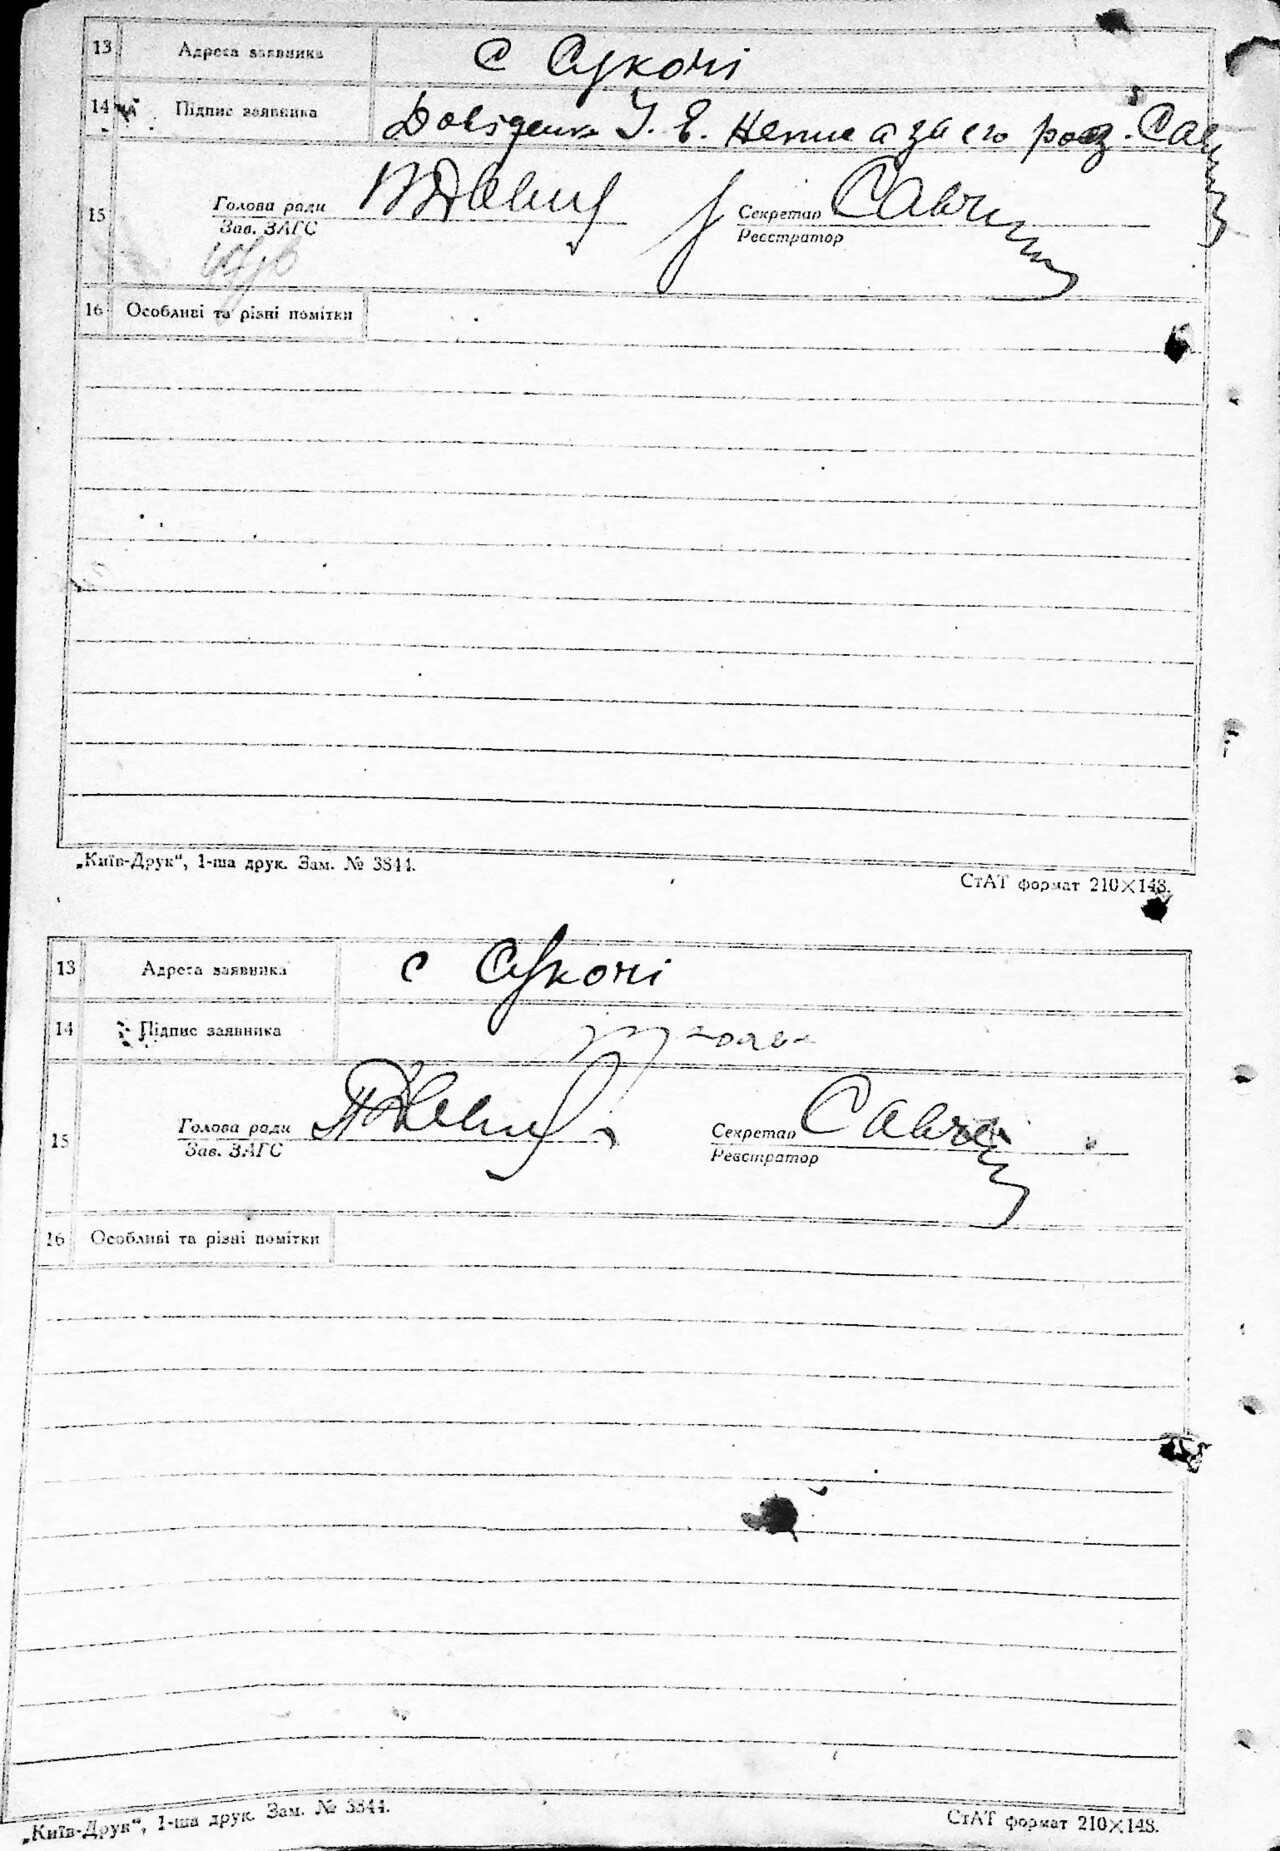 13 Адреса заявника с Сукочі
14 Підпис заявника Довіденка І. Е. а за его роз. Сав
15 Голова ради Секретар Савчин
Зав. ЗАГС Реєстратор
16 Особливі та різні помітки
„Київ-Друк“, 1-ша друк. Зам. № 3844.
СтАТ формат 210×148.
13 Адреса заявника с Сукочі
14 Підпис заявника
15 Голова ради Секретар Савчин
Зав. ЗАГС Реєстратор
16 Особливі та різні помітки
„Київ-Друк“, 1-ша друк. Зам. № 3844.
СтАТ формат 210×148.